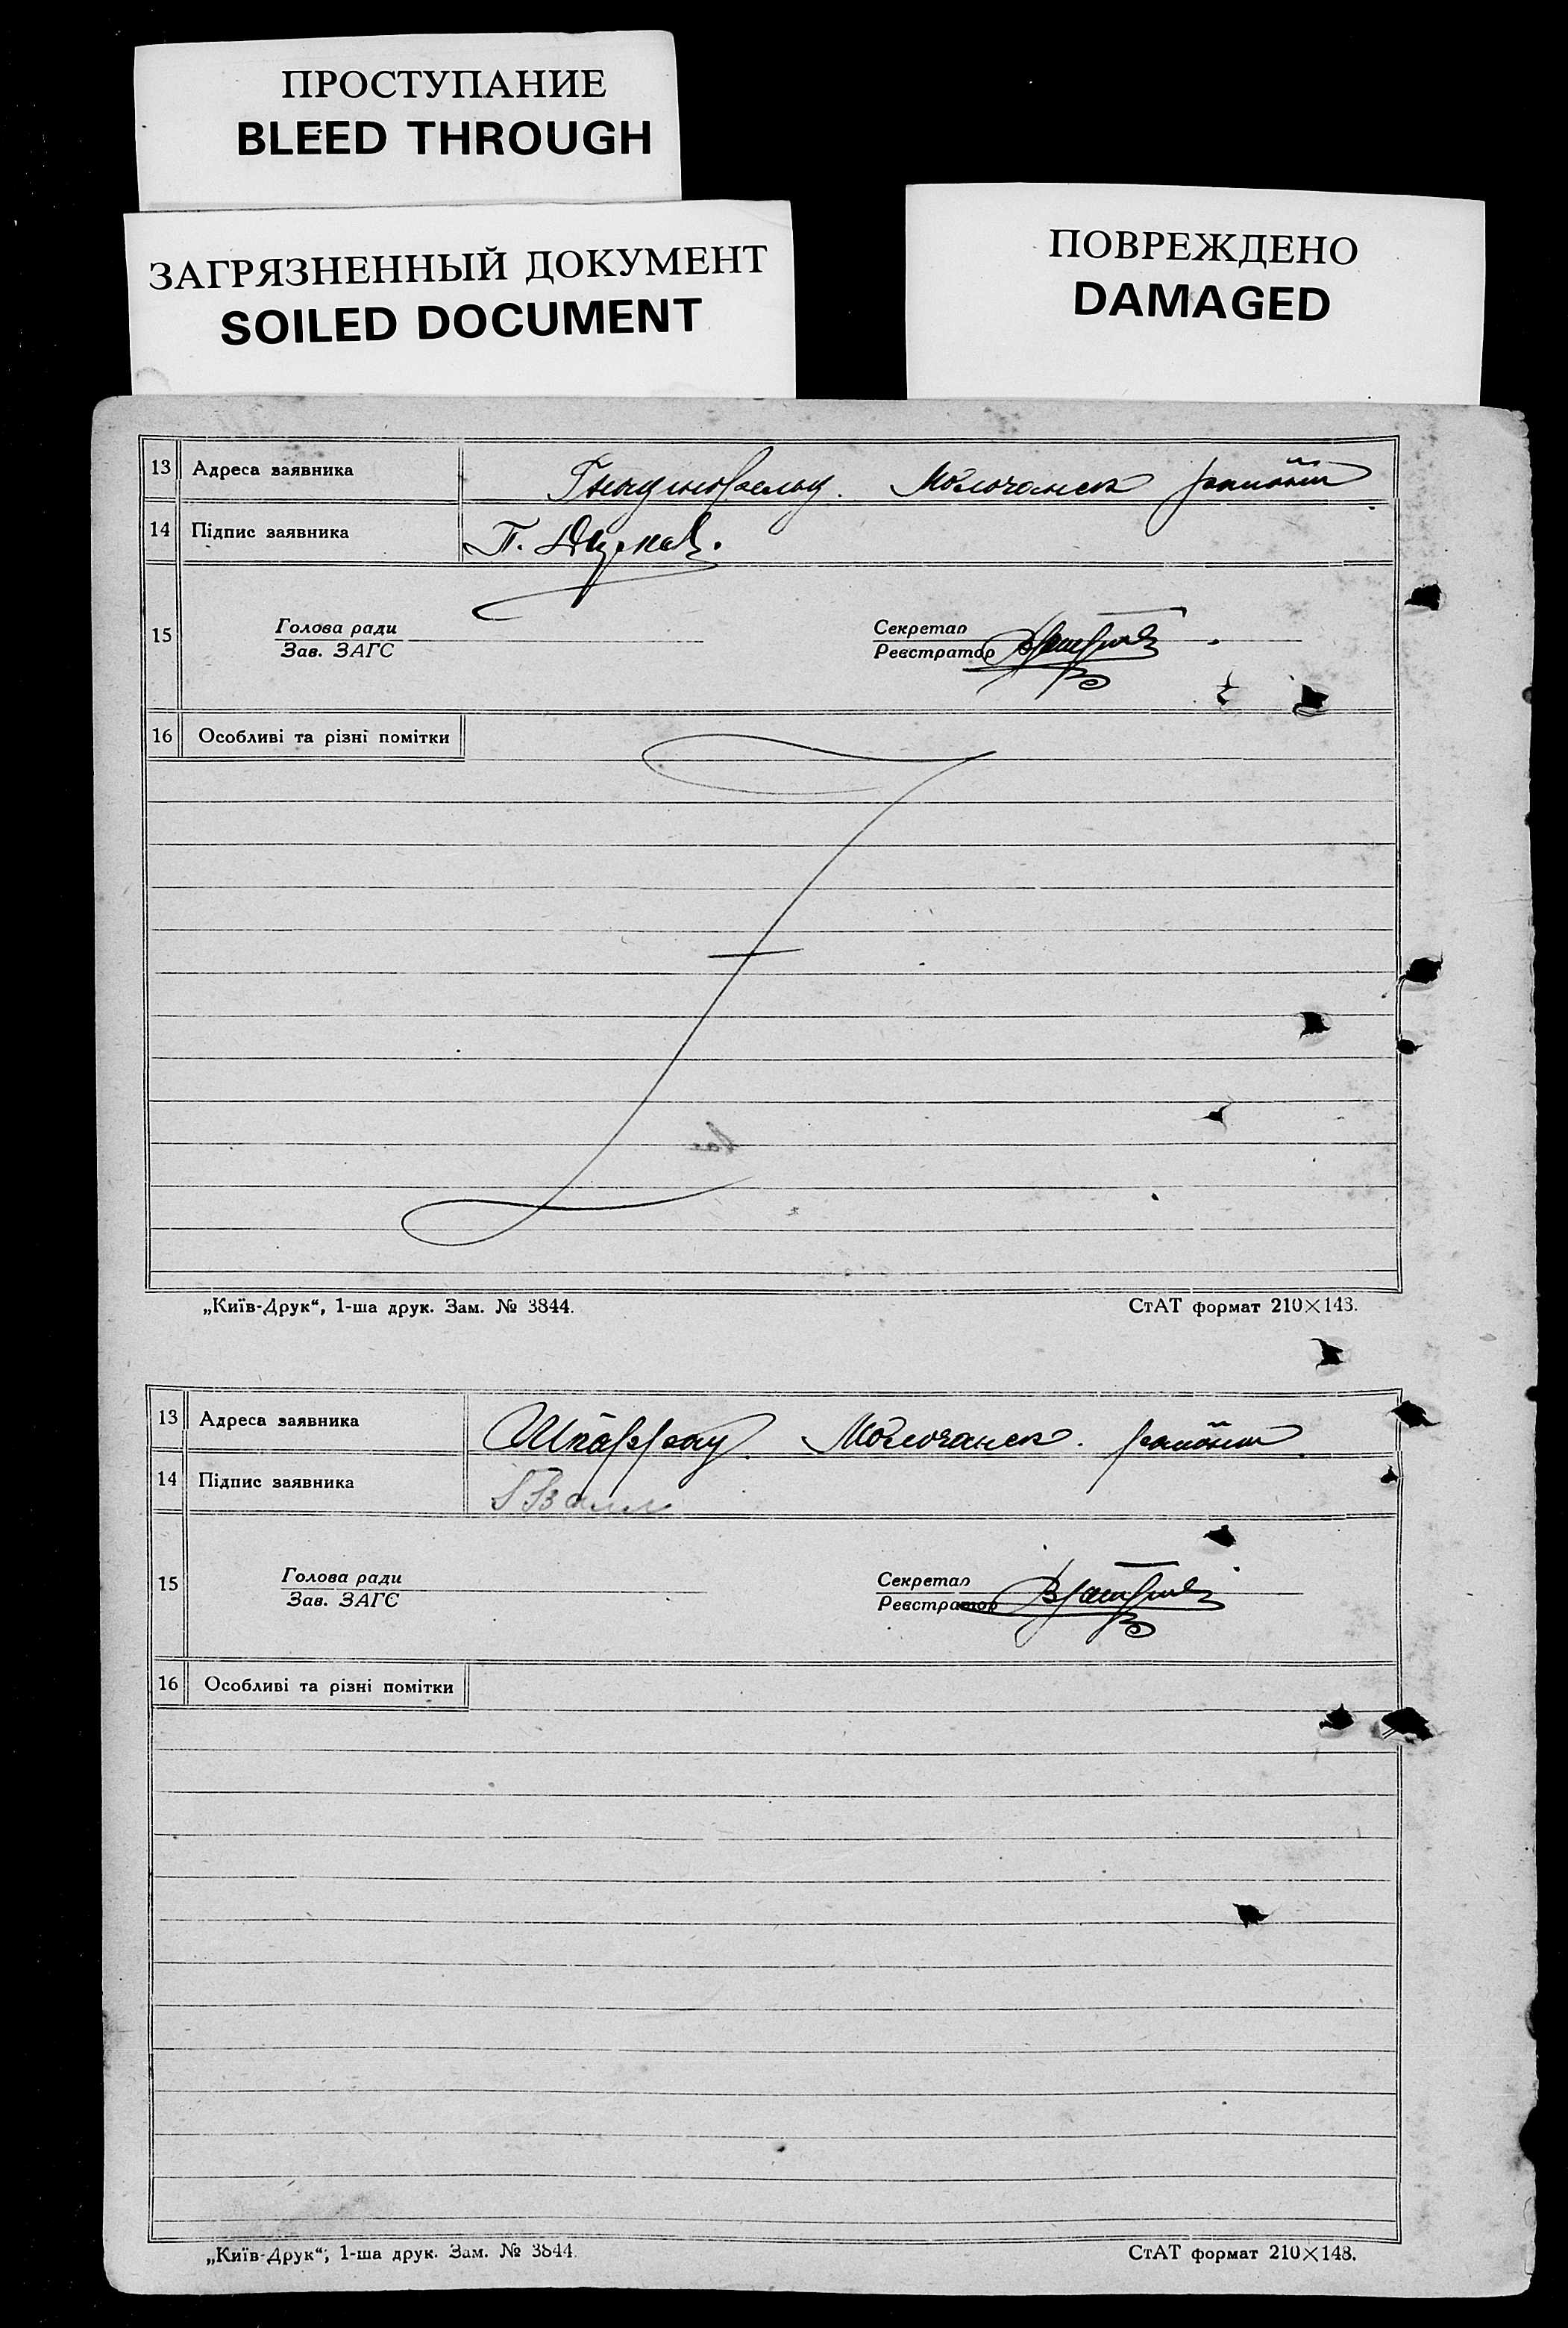 ПРОСТУПАНИЕ
BLEED THROUGH
ЗАГРЯЗНЕННЫЙ ДОКУМЕНТ
SOILED DOCUMENT
ПОВРЕЖДЕНО
DAMAGED
13 Адреса заявника Молочанск району
14 Підпис заявника П.
15 Голова ради Секретар
Зав. ЗАГС Реєстратор
16 Особливі та різні помітки
„Київ-Друк“, 1-ша друк. Зам. № 3844. СтАТ формат 210×143.
13 Адреса заявника Шпаррау. Молочанск. району
14 Підпис заявника Валл
15 Голова ради Секретар
Зав. ЗАГС Реєстратор
16 Особливі та різні помітки
„Київ-Друк“, 1-ша друк. Зам. № 3844. СтАТ формат 210×148.